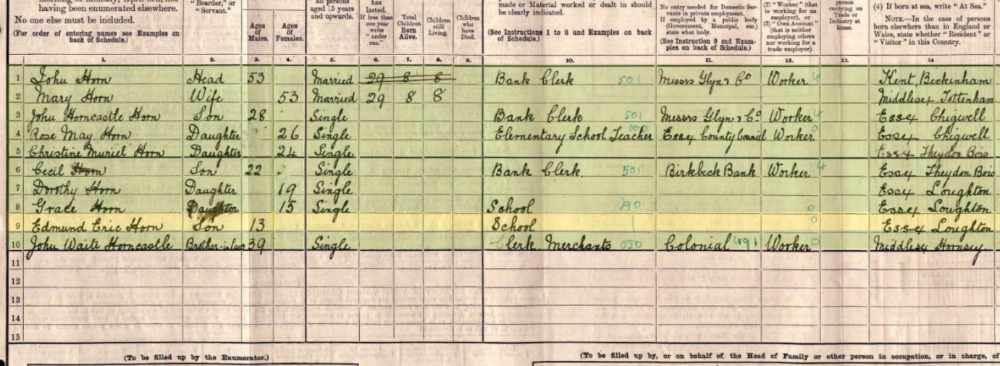 having been enumerated elsewhere.
No one else must be included.
(For order of entering names see Examples on back of Schedule.)
"Boarder," or "Servant."
Ages of Males.
Ages of Females.
and upwards.
If less than one year write "under one."
Total Children Born Alive.
Children still Living.
Children who have Died.
made or Material worked or dealt in should be clearly indicated.
(See Instructions 1 to 8 and Examples on back of Schedule.)
No entry needed for Domestic Servants in private employment.
If employed by a public body (Government, Municipal, etc.) state what body.
(See Instruction 9 and Examples on back of Schedule.)
(4) If born at sea, write "At Sea."
NOTE.—In the case of persons born elsewhere than in England or Wales, state whether "Resident" or "Visitor" in this Country.
1 John Horn Head 53 Married 29 8 8 Bank Clerk 501 Messrs Glyn & Co Worker Kent Beckenham
2 Mary Horn Wife 53 Married 29 8 8 Middlesex Tottenham
3 John Horncastle Horn Son 28 Single Bank Clerk 501 Messrs Glyn & Co Worker Essex Chigwell
4 Rose May Horn Daughter 26 Single Elementary School Teacher Essex County Council Worker Essex Chigwell
5 Christine Muriel Horn Daughter 24 Single Essex Theydon Bois
6 Cecil Horn Son 22 Single Bank Clerk 501 Birkbeck Bank Worker Essex Theydon Bois
7 Dorothy Horn Daughter 19 Single Essex Loughton
8 Grace Horn Daughter 15 Single School Essex Loughton
9 Edmund Eric Horn Son 13 School Essex Loughton
10 John Waite Horncastle Brother-in-law 39 Single Clerk Merchants Colonial Worker Middlesex Hornsey
11
12
13
14
15
(To be filled up by the Enumerator.)
(To be filled up by, or on behalf of, the Head of Family or other person in occupation, or in charge, of